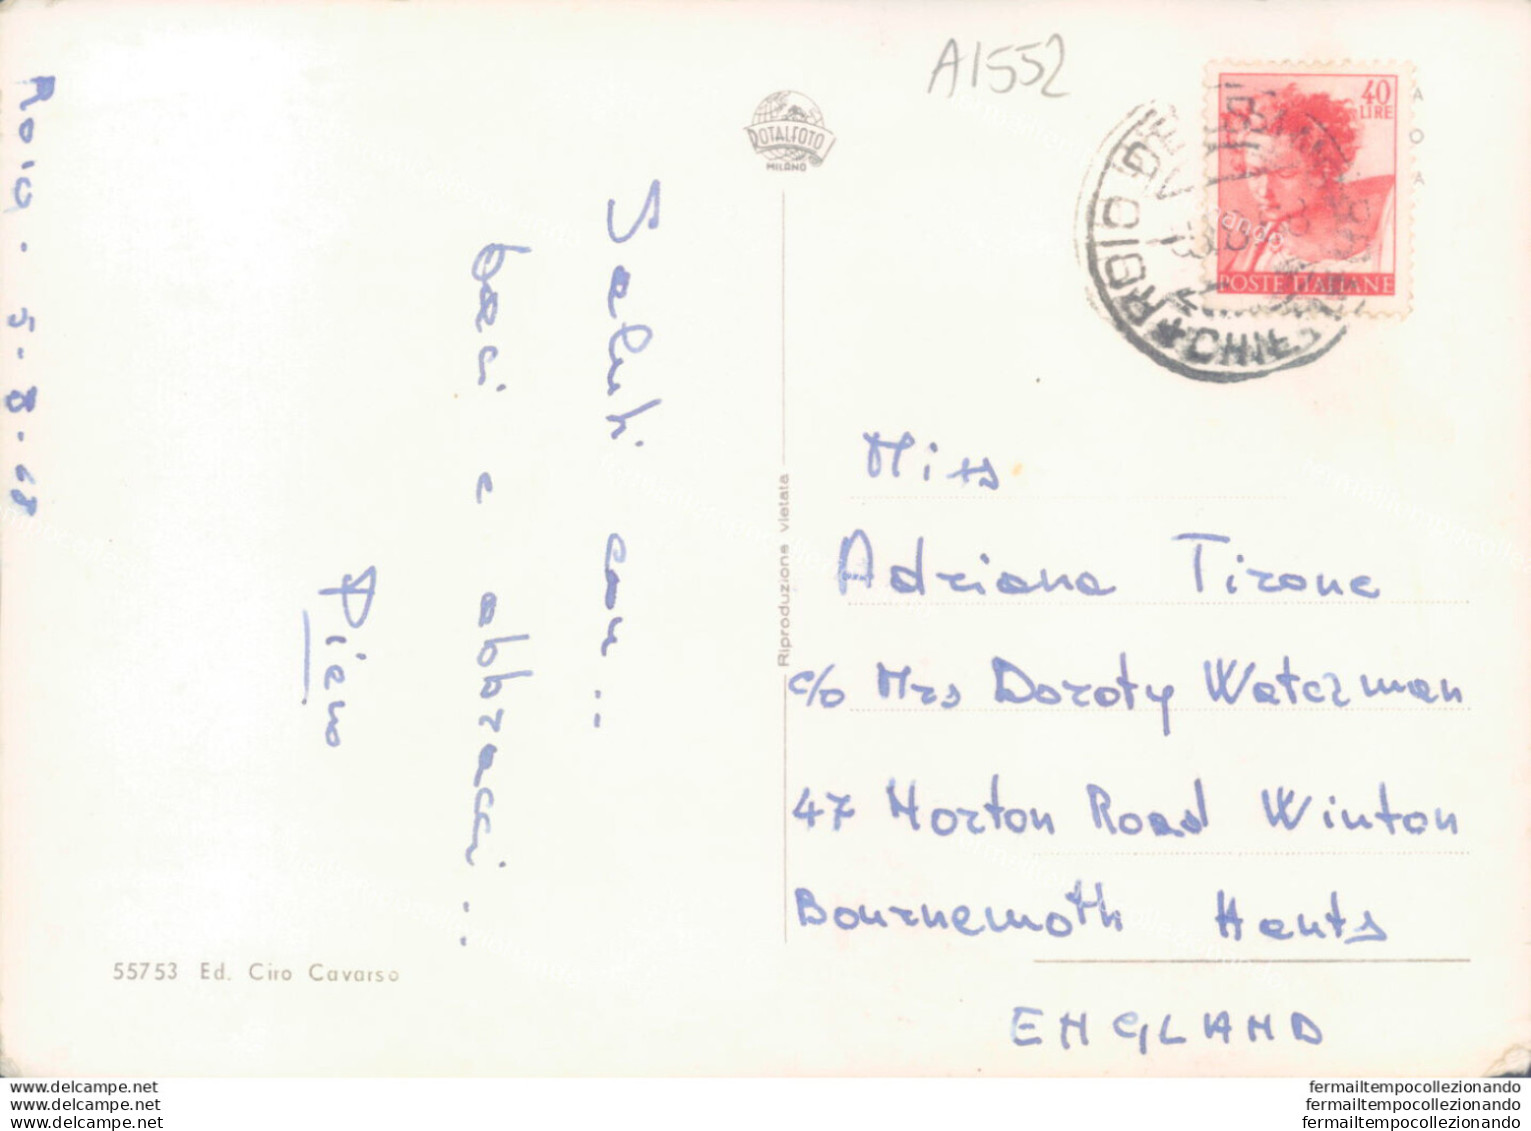 A1552
40
LIRE
POSTE ITALIANE
ROTALFOTO
MILANO
ROIO
CHIETI
Roio. 5-8-68
Saluti con..
baci e abbracci..
Piero
Riproduzione vietata
Miss
Adriana Tirone
c/o Mrs Doroty Waterman
47 Morton Road Winton
Bournemoth Hants
ENGLAND
55753 Ed. Ciro Cavarso
www.delcampe.net
www.delcampe.net
www.delcampe.net
fermailtempocollezionando
fermailtempocollezionando
fermailtempocollezionando